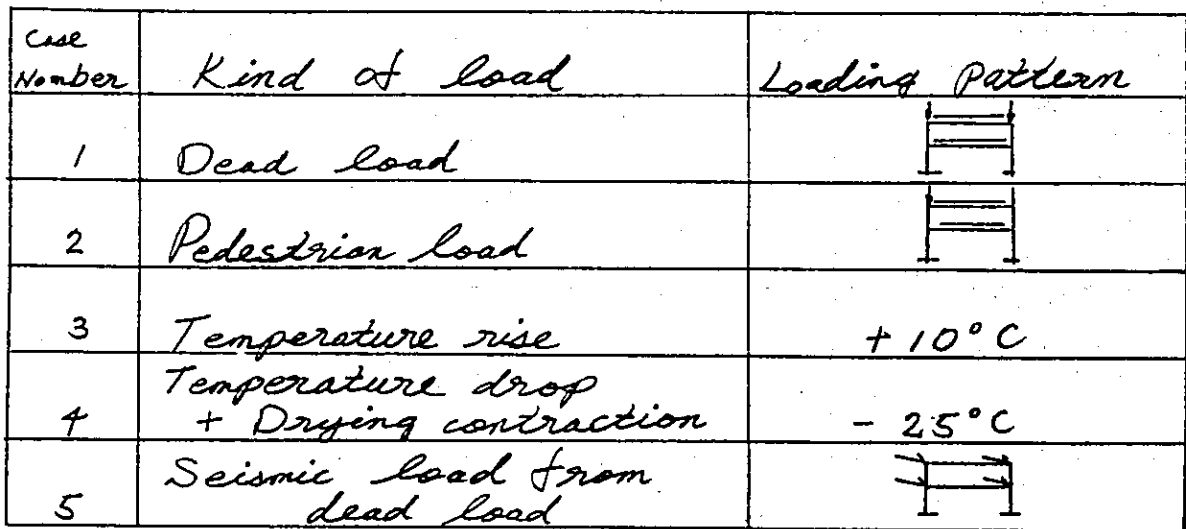 Case
Nomber Kind of load Loading pattern
1 Dead load
2 Pedestrian load
3 Temperature rise +10°C
Temperature drop
4 + Drying contraction - 25°C
Seismic load from
5 dead load